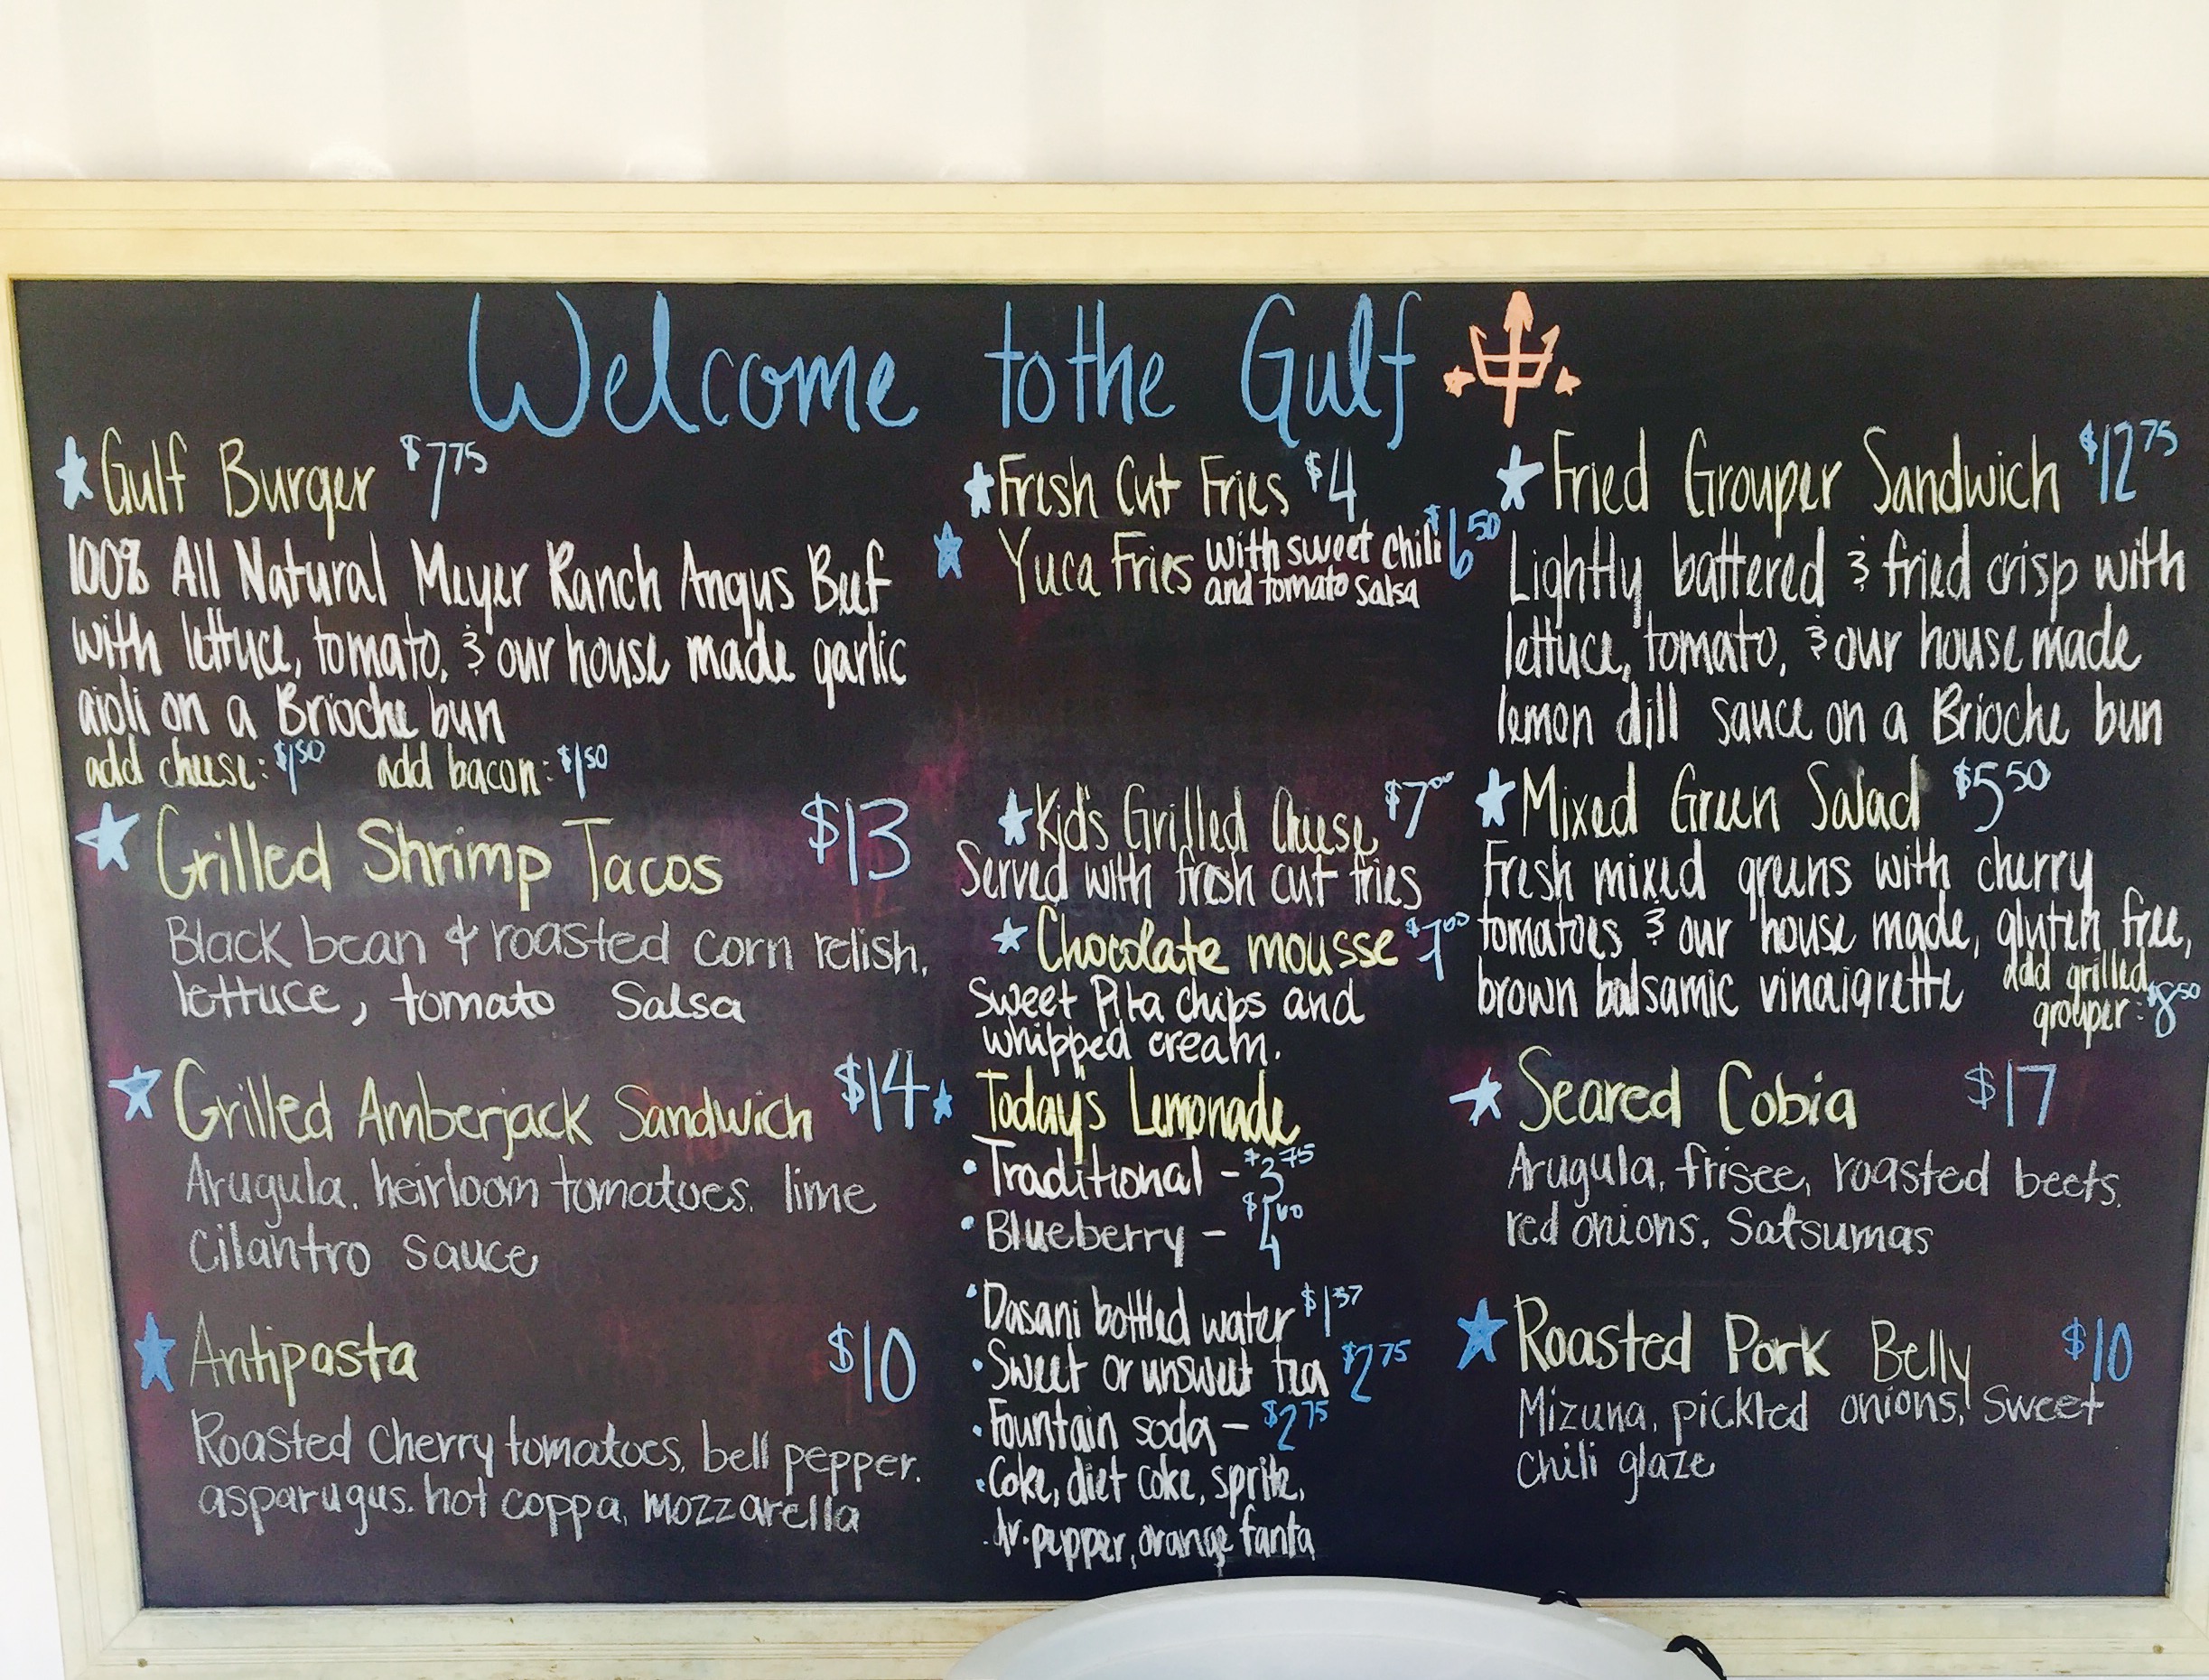 Welcome to the Gulf
Gulf Burger $7.75
100% All Natural Meyer Ranch Angus Beef
with lettuce, tomato, & our house made garlic
aioli on a Brioche bun
add cheese: $1.50 add bacon: $1.50
Grilled Shrimp Tacos $13
Black bean & roasted corn relish,
lettuce, tomato Salsa
Grilled Amberjack Sandwich $14
Arugula, heirloom tomatoes, lime
cilantro sauce
Antipasta $10
Roasted Cherry tomatoes, bell pepper,
asparugus, hot coppa, mozzarella
Fresh Cut Fries $4
Yuca Fries with sweet chili $6.50
and tomato salsa
Kid's Grilled Cheese $7.00
Served with fresh cut fries
Chocolate mousse $7.00
Sweet Pita chips and
whipped cream.
Today's Lemonade
Traditional - $3.75
Blueberry -
Dasani bottled water $1.37
Sweet or unsweet tea $2.75
Fountain soda - $2.75
Coke, diet coke, sprite,
dr. pepper, orange fanta
Fried Grouper Sandwich $12.75
Lightly battered & fried crisp with
lettuce, tomato, & our house made
lemon dill sauce on a Brioche bun
Mixed Green Salad $5.50
Fresh mixed greens with cherry
tomatoes & our house made, gluten free,
brown balsamic vinaigrette add grilled
grouper: $8.50
Seared Cobia $17
Arugula, frisee, roasted beets,
red onions, Satsumas
Roasted Pork Belly $10
Mizuna, pickled onions, Sweet
Chili glaze